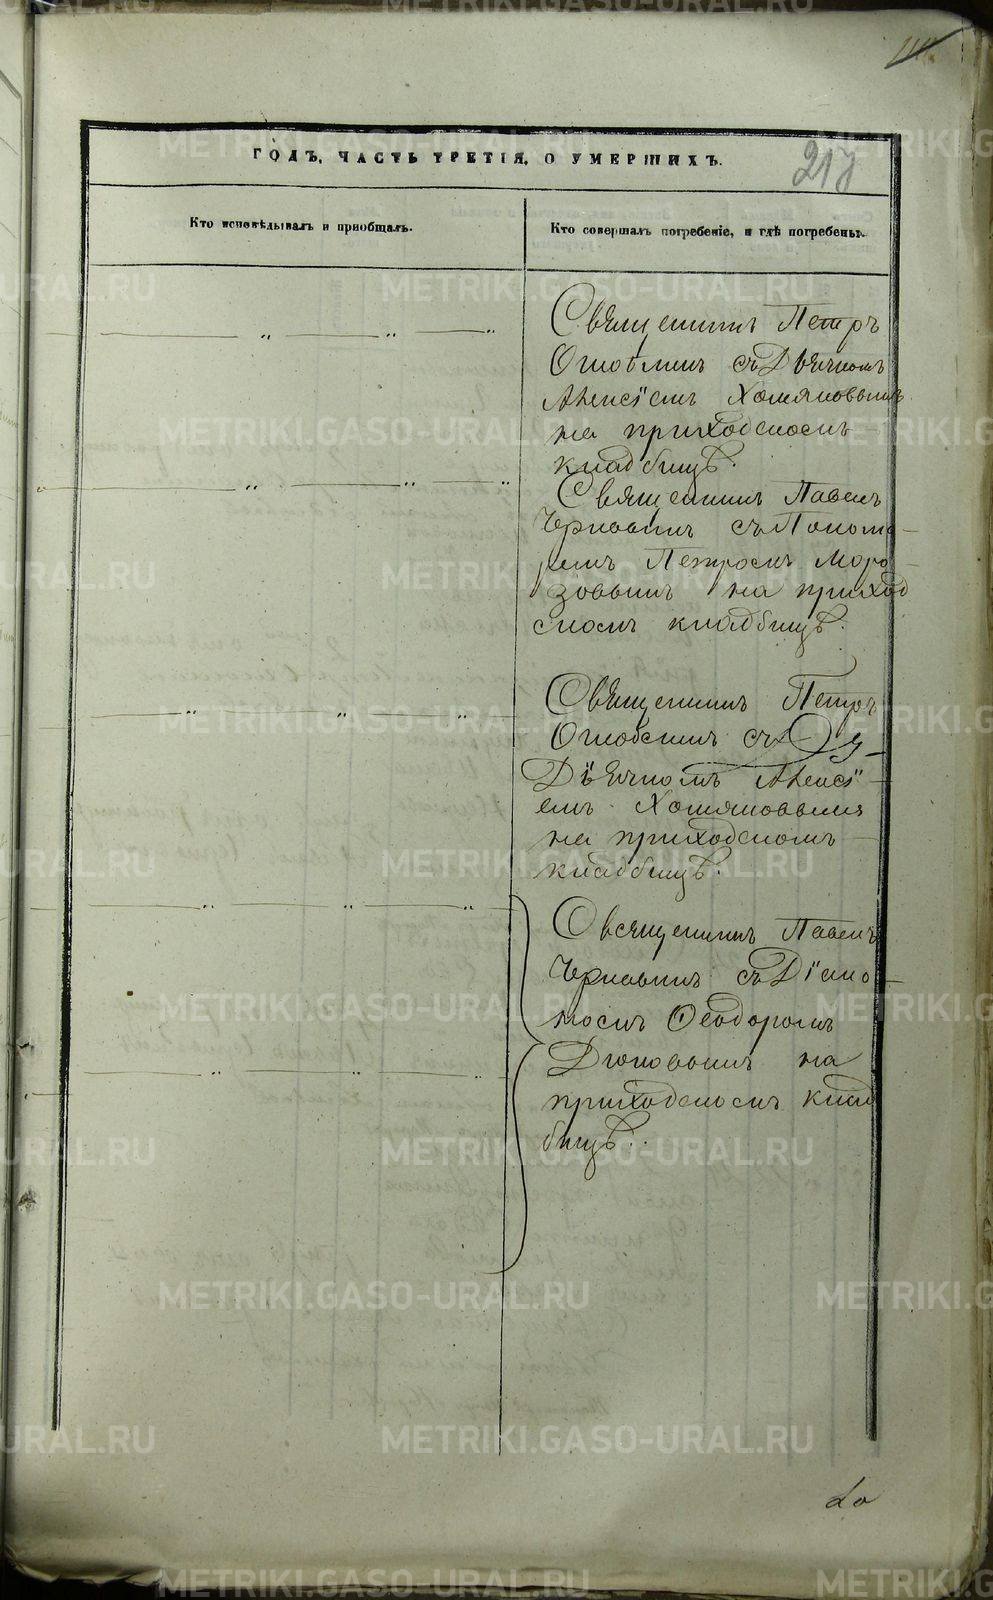 ГОДЪ, ЧАСТЬ ТРЕТІЯ, О УМЕРШИХЪ.
217
Кто исповѣдывалъ и пріобщалъ.
Кто совершалъ погребеніе, и гдѣ погребены.
Священникъ Петръ
съ Дьячкомъ
Алексіемъ Хомяковымъ
на приходскомъ
кладбищѣ.
Священникъ Павелъ
Чернавинъ съ Понома-
ремъ Петромъ Моро-
зовымъ на приход
скомъ кладбищѣ.
Священникъ Петръ
съ
Дьячкомъ Алексі-
емъ Хомяковымъ
на приходскомъ
кладбищѣ.
Священникъ Павелъ
Чернавинъ съ Діако-
номъ Ѳеодоромъ
на
приходскомъ клад
бищѣ.
METRIKI.GASO-URAL.RU